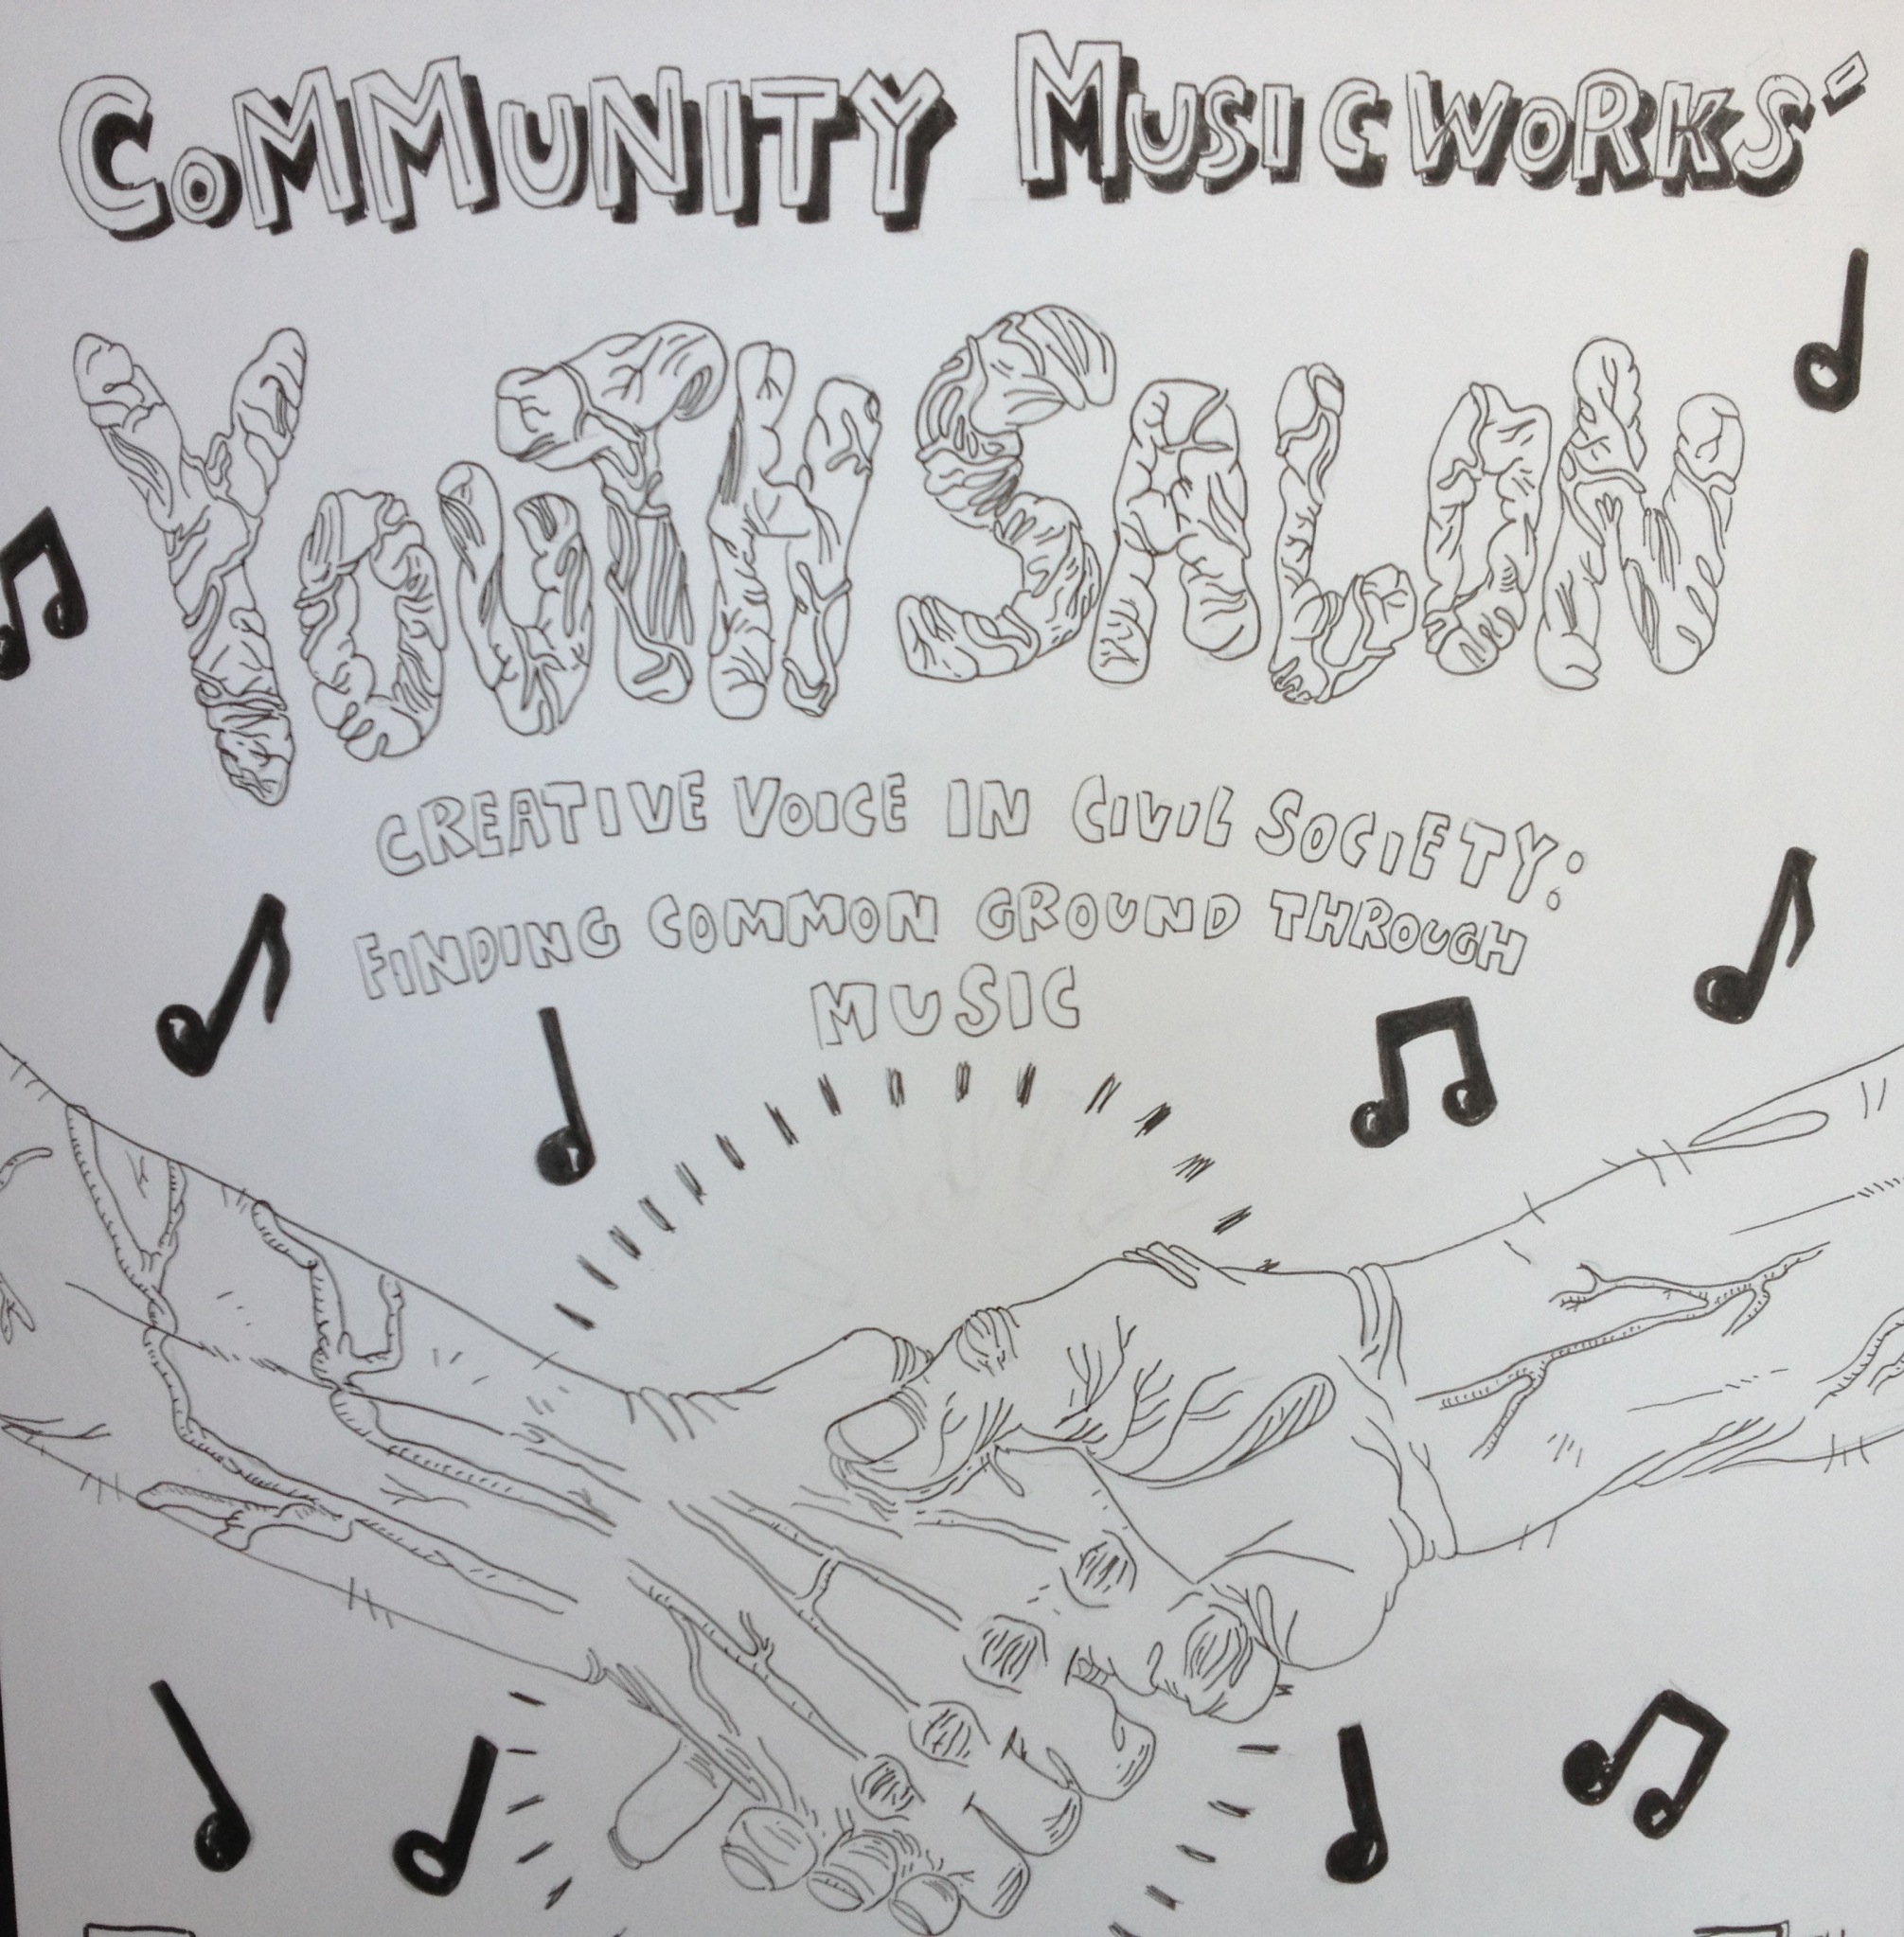 COMMUNITY MUSICWORKS'
YOUTH SALON
CREATIVE VOICE IN CIVIL SOCIETY:
FINDING COMMON GROUND THROUGH
MUSIC